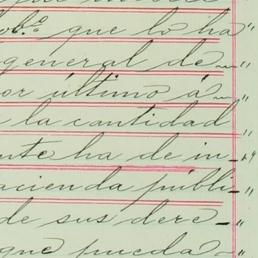 ob.º que lo ha
general de "
or último á "
la cantidad "
nte ha de in- "
acienda públi- "
de sus dere- "
que pueda "